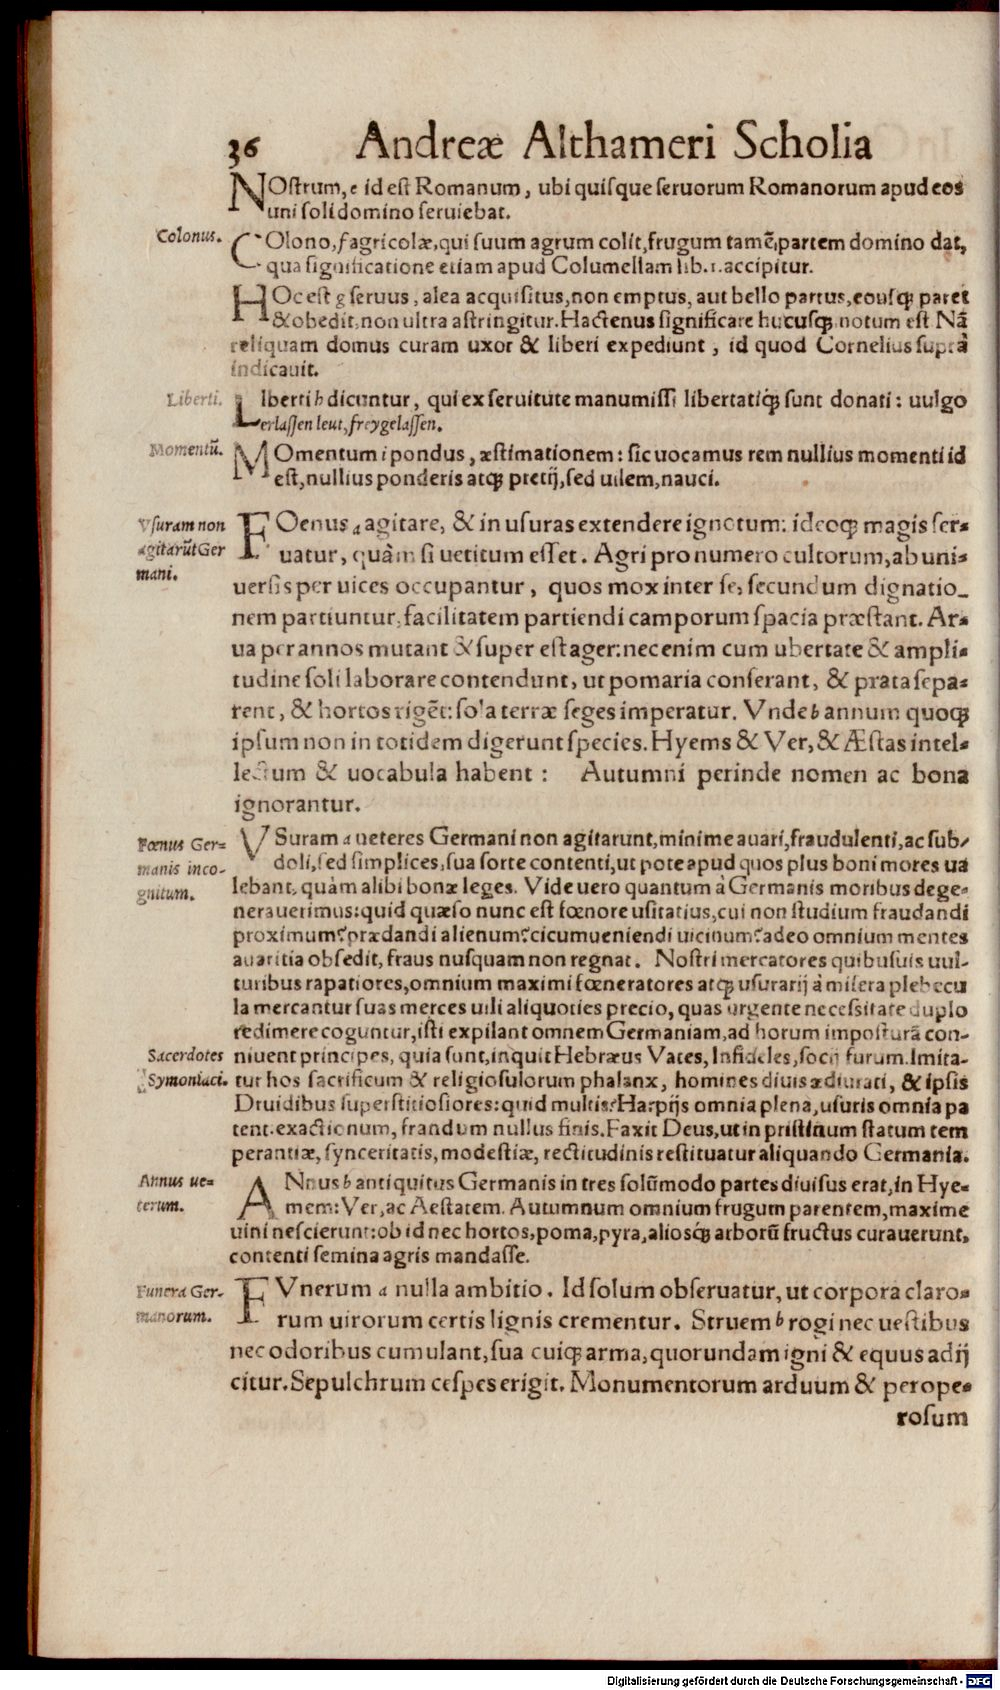 36 Andreæ Althameri Scholia
NOstrum, e id est Romanum, ubi quisque seruorum Romanorum apud eos
uni soli domino seruiebat.
Colonus.
COlono, f agricolæ, qui suum agrum colit, frugum tamẽ, partem domino dat,
qua significatione etiam apud Columellam lib.1. accipitur.
HOc est g seruus, alea acquisitus, non emptus, aut bello partus, eousq; paret
& obedit, non ultra astringitur. Hactenus significare hucusq; notum est Nã
reliquam domus curam uxor & liberi expediunt, id quod Cornelius suprà
indicauit.
Liberti.
LIberti h dicuntur, qui ex seruitute manumissi libertatiq; sunt donati: uulgo
erlassen leut, freygelassen.
Momentũ.
MOmentum i pondus, æstimationem: sic uocamus rem nullius momenti id
est, nullius ponderis atq; pretij, sed uilem, nauci.
Vsuram non
agitarũt Ger
mani.
FOenus a agitare, & in usuras extendere ignotum: ideoq; magis ser=
uatur, quàm si uetitum esset. Agri pro numero cultorum, ab uni=
uersis per uices occupantur, quos mox inter se, secundum dignatio_
nem partiuntur, facilitatem partiendi camporum spacia præstant. Ar=
ua per annos mutant & super est ager: nec enim cum ubertate & ampli=
tudine soli laborare contendunt, ut pomaria conserant, & prata sepa=
rent, & hortos rigẽt: sola terræ seges imperatur. Vnde b annum quoq;
ipsum non in totidem digerunt species. Hyems & Ver, & Æstas intel=
lectum & uocabula habent: Autumni perinde nomen ac bona
ignorantur.
Fœnus Ger=
manis inco-
gnitum.
VSuram a ueteres Germani non agitarunt, minime auari, fraudulenti, ac sub/
doli, sed simplices, sua sorte contenti, ut pote apud quos plus boni mores ua
lebant, quàm alibi bonæ leges. Vide uero quantum à Germanis moribus dege=
nerauerimus: quid quæso nunc est fœnore usitatius, cui non studium fraudandi
proximum? prædandi alienum? cicumueniendi uicinum? adeo omnium mentes
auaritia obsedit, fraus nusquam non regnat. Nostri mercatores quibusuis uul-
turibus rapatiores, omnium maximi fœneratores atq; usurarij à misera plebecu
la mercantur suas merces uili aliquoties precio, quas urgente necessitate duplo
redimere coguntur, isti expilant omnem Germaniam, ad horum imposturã con-
niuent principes, quia sunt, inquit Hebræus Vates, Infideles, socij furum. Imita-
Sacerdotes
Symoniaci.
tur hos sacrificum & religiosulorum phalanx, homines diuis ædiurati, & ipsis
Druidibus superstitiosiores: quid multis? Harpijs omnia plena, usuris omnia pa
tent. exactionum, frandum nullus finis. Faxit Deus, ut in pristinum statum tem
perantiæ, synceritatis, modestiæ, rectitudinis restituatur aliquando Germania.
Annus ue=
terum.
ANnus b antiquitus Germanis in tres solũmodo partes diuisus erat, in Hye=
mem: Ver, ac Aestatem. Autumnum omnium frugum parentem, maxime
uini nescierunt: ob id nec hortos, poma, pyra, aliosq; arborũ fructus curauerunt,
contenti semina agris mandasse.
Funera Ger-
manorum.
FVnerum a nulla ambitio. Id solum obseruatur, ut corpora claro=
rum uirorum certis lignis crementur. Struem b rogi nec uestibus
nec odoribus cumulant, sua cuiq; arma, quorundam igni & equus adij
citur. Sepulchrum cespes erigit. Monumentorum arduum & perope=
rosum
Digitalisierung gefördert durch die Deutsche Forschungsgemeinschaft - DFG